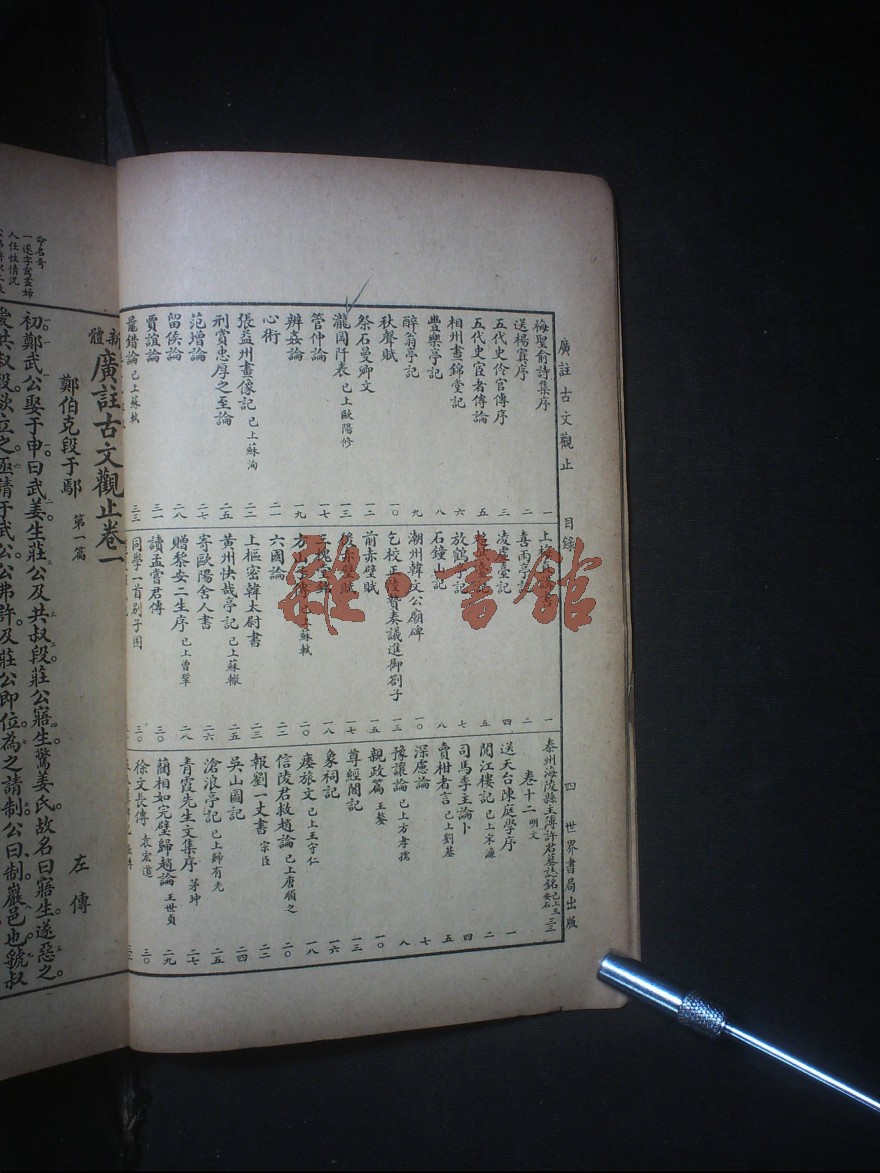 廣註古文觀止 目錄 四 世界書局出版
梅聖俞詩集序 一
送楊寘序 二
五代史伶官傳序 三
五代史宦者傳論 五
相州晝錦堂記 六
豐樂亭記 八
醉翁亭記 九
秋聲賦 一〇
祭石曼卿文 一二
瀧岡阡表 已上歐陽修 一三
管仲論 一七
辨姦論 一九
心術 二一
張益州畫像記 已上蘇洵 二二
刑賞忠厚之至論 二五
范增論 二七
留侯論 二八
賈誼論 三一
鼂錯論 已上蘇軾 三三
喜雨亭記 二
凌虛臺記 四
超然臺記 五
放鶴亭記 七
石鐘山記 八
潮州韓文公廟碑 一〇
乞校正陸贄奏議進御劄子 一三
前赤壁賦 一五
後赤壁賦 一七
三槐堂銘 一八
方山子傳 已上蘇軾 二〇
六國論 二二
上樞密韓太尉書 二三
黃州快哉亭記 已上蘇轍 二五
寄歐陽舍人書 二六
贈黎安二生序 已上曾鞏 二八
讀孟嘗君傳 三〇
同學一首別子固 三〇
泰州海陵縣主簿許君墓誌銘 已上王安石 三二
卷十二 明文
送天台陳庭學序 一
閱江樓記 已上宋濂 二
司馬季主論卜 四
賣柑者言 已上劉基 五
深慮論 七
豫讓論 已上方孝孺 八
親政篇 王鏊 一〇
尊經閣記 一三
象祠記 一六
瘞旅文 已上王守仁 一八
信陵君救趙論 已上唐順之 二〇
報劉一丈書 宗臣 二二
吳山圖記 二四
滄浪亭記 已上歸有光 二五
青霞先生文集序 茅坤 二七
藺相如完璧歸趙論 王世貞 二九
徐文長傳 袁宏道 三〇
新體廣註古文觀止卷一
鄭伯克段于鄢 第一篇 左傳
初。鄭武公娶于申。曰武姜。生莊公及共叔段。莊公寤生。驚姜氏。故名曰寤生。遂惡之。
愛共叔段。欲立之。亟請于武公。公弗許。及莊公即位。為之請制。公曰。制。巖邑也。虢叔
命名奇
人任性情況
雜·書館